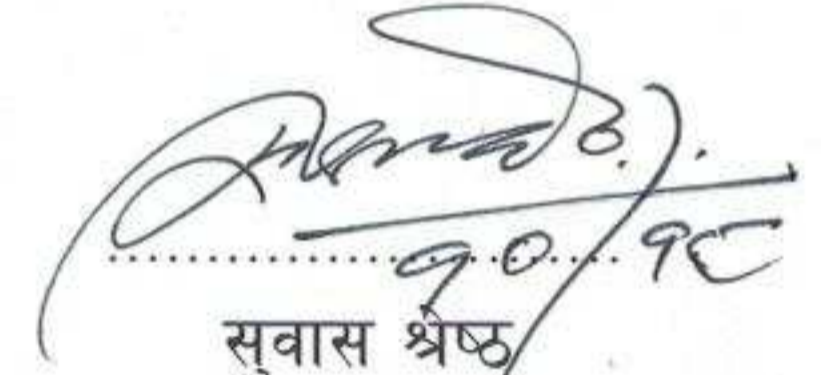 १०/१८
सुवास श्रेष्ठ